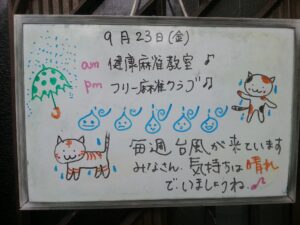 9月23日(金)
am 健康麻雀教室♪
pm フリー麻雀クラブ♪
毎週台風が来ています
みなさん、気持ちは晴れ
でいましょうね♪